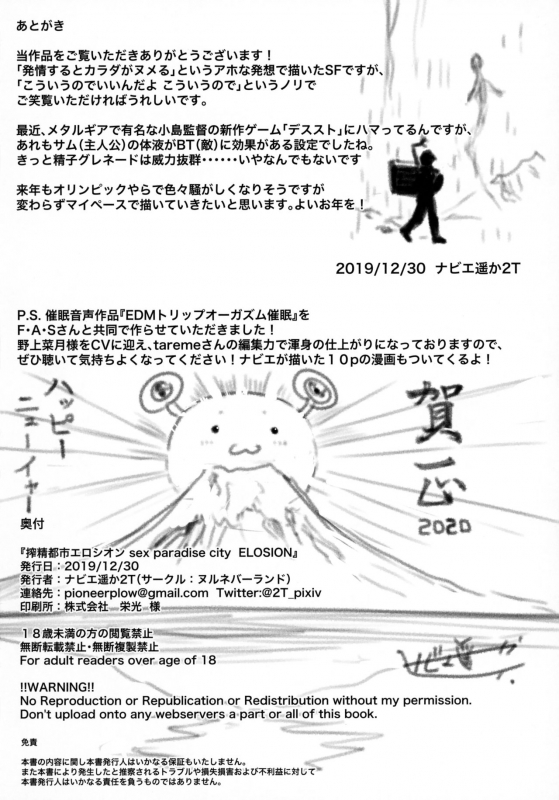 あとがき
当作品をご覧いただきありがとうございます！
「発情するとカラダがヌメる」というアホな発想で描いたSFですが、
「こういうのでいいんだよ こういうので」というノリで
ご笑覧いただければうれしいです。
最近、メタルギアで有名な小島監督の新作ゲーム「デススト」にハマってるんですが、
あれもサム(主人公)の体液がBT(敵)に効果がある設定でしたね。
きっと精子グレネードは威力抜群・・・・・・いやなんでもないです
来年もオリンピックやらで色々騒がしくなりそうですが
変わらずマイペースで描いていきたいと思います。よいお年を！
2019/12/30 ナビエ遥か2T
P.S. 催眠音声作品『EDMトリップオーガズム催眠』を
F・A・Sさんと共同で作らせていただきました！
野上菜月様をCVに迎え、taremeさんの編集力で渾身の仕上がりになっておりますので、
ぜひ聴いて気持ちよくなってください！ナビエが描いた１０pの漫画もついてくるよ！
ハッピー
ニューイャー
賀正
2020
奥付
『搾精都市エロシオン sex paradise city ELOSION』
発行日：2019/12/30
発行者：ナビエ遥か2T(サークル：ヌルネバーランド)
連絡先：pioneerplow@gmail.com Twitter:@2T_pixiv
印刷所：株式会社 栄光 様
１８歳未満の方の閲覧禁止
無断転載禁止・無断複製禁止
For adult readers over age of 18
!!WARNING!!
No Reproduction or Republication or Redistribution without my permission.
Don't upload onto any webservers a part or all of this book.
免責
本書の内容に関し本書発行人はいかなる保証もいたしません。
また本書により発生したと推察されるトラブルや損失損害および不利益に対して
本書発行人はいかなる責任を負うものではありません。